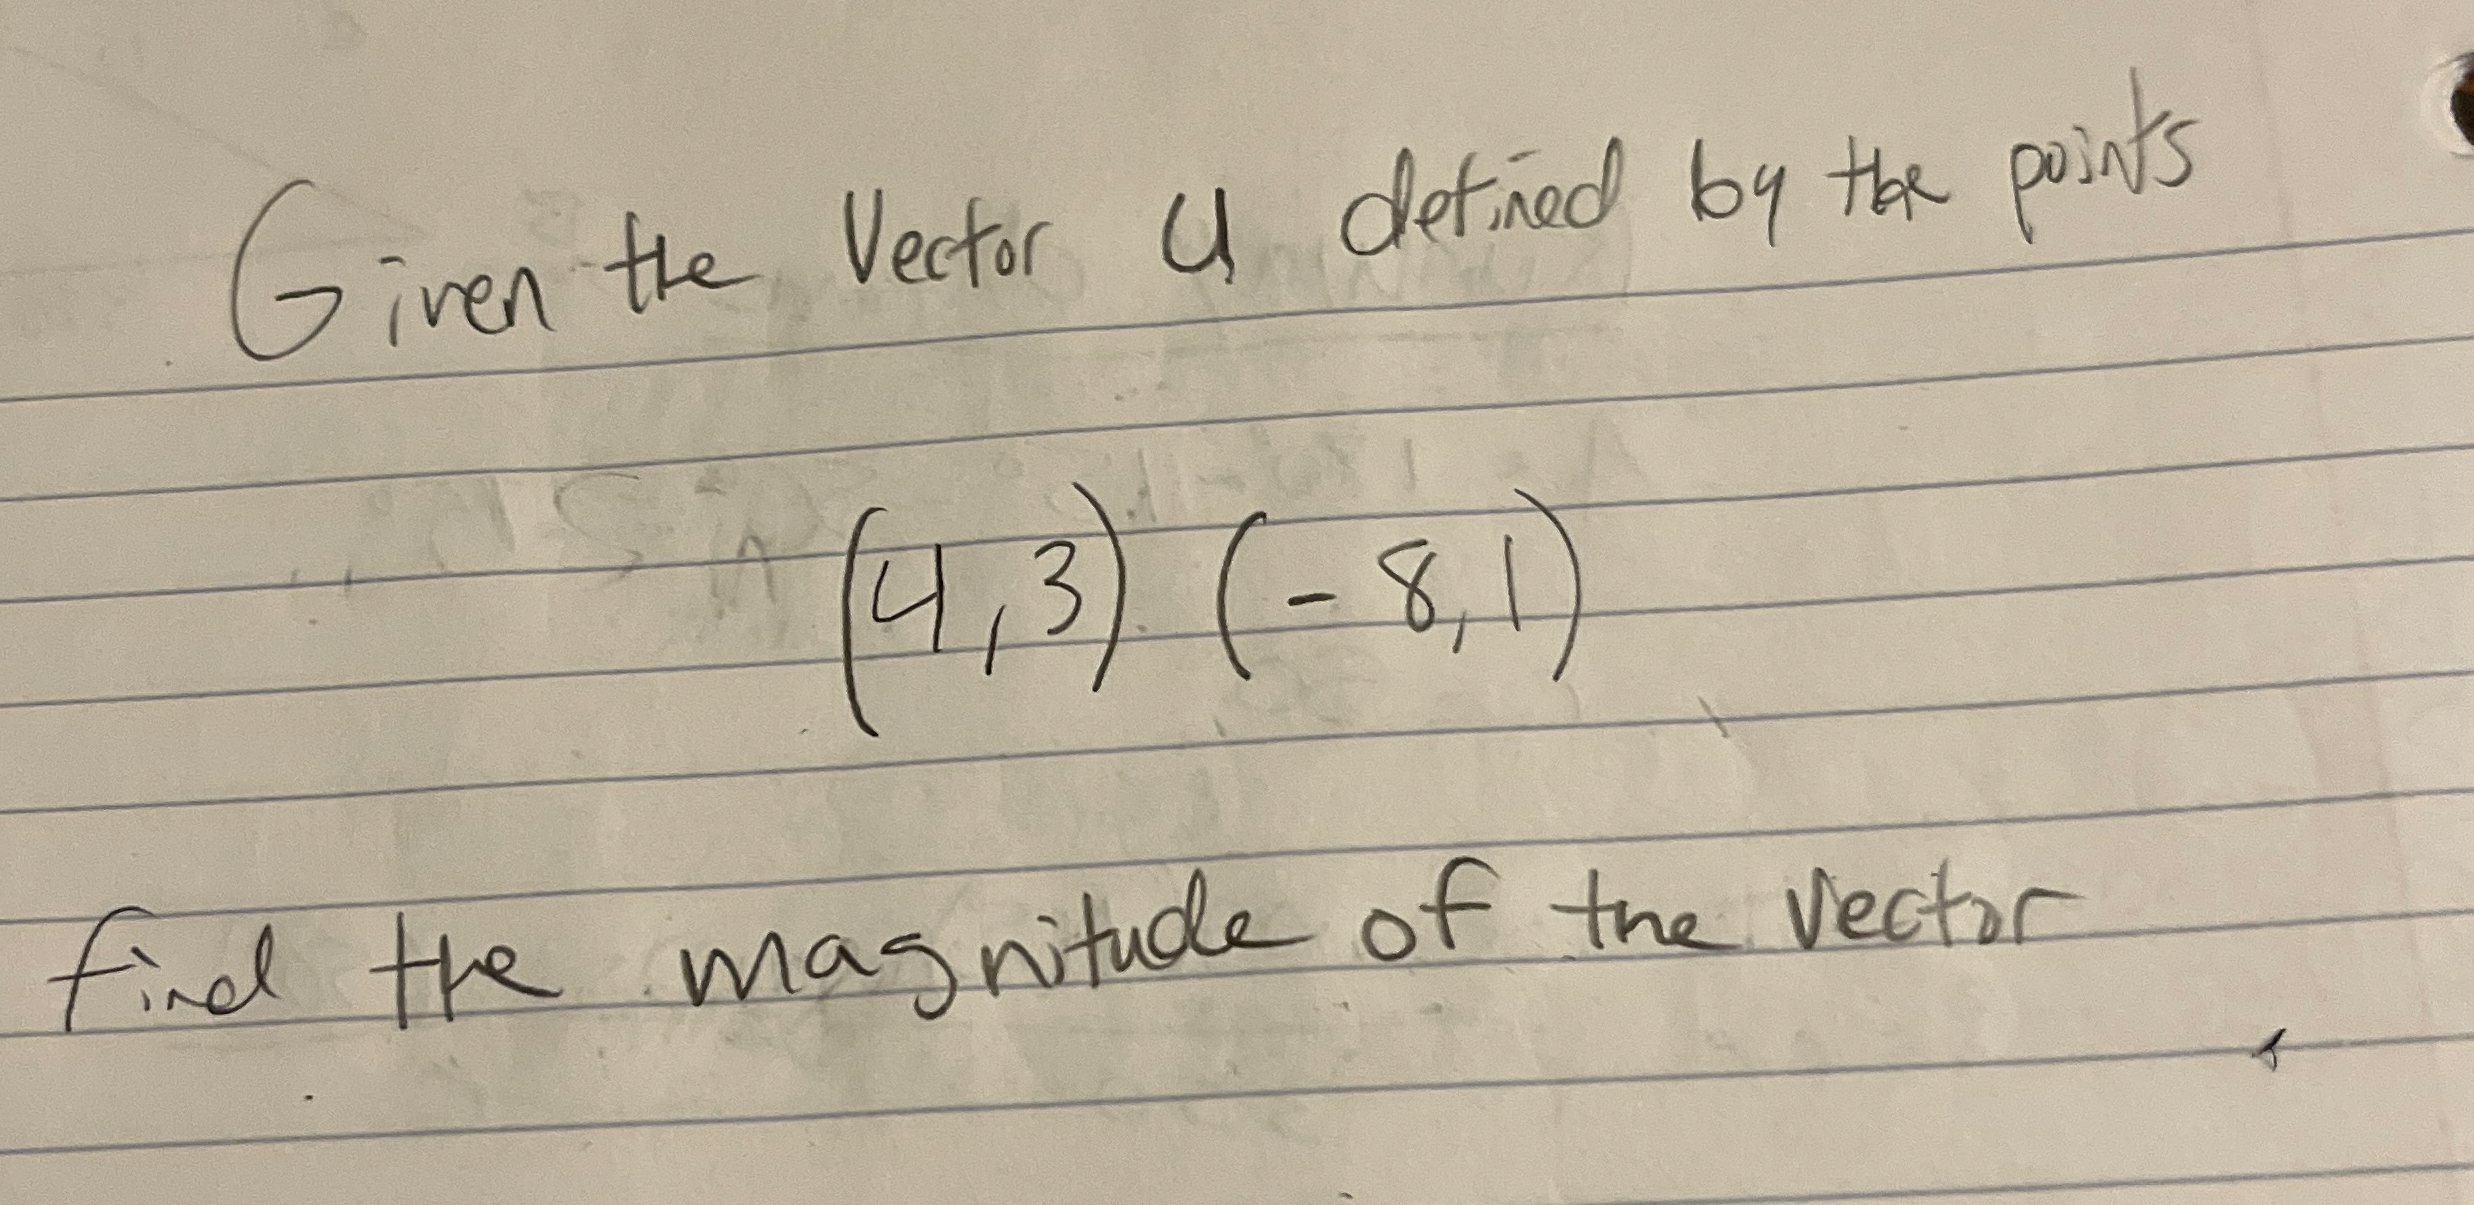 Given the Vector u defined by the points
(4,3) (-8,1)
find the magnitude of the vector